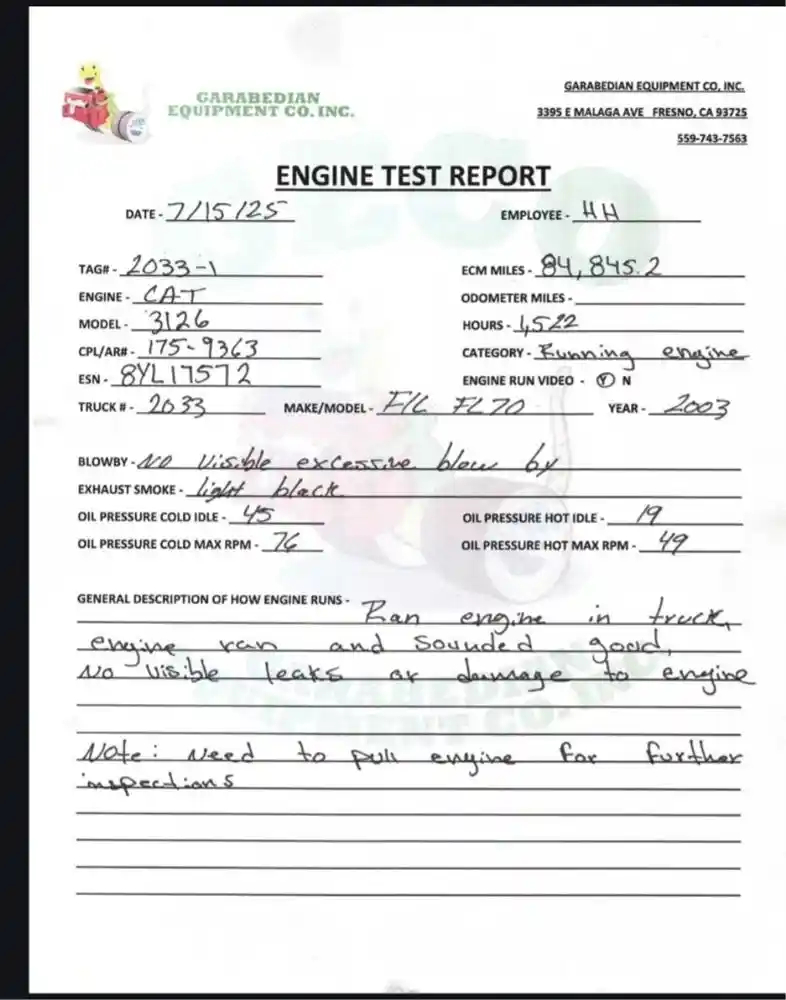 GARABEDIAN
EQUIPMENT CO. INC.
GARABEDIAN EQUIPMENT CO, INC.
3395 E MALAGA AVE FRESNO, CA 93725
559-743-7563
ENGINE TEST REPORT
DATE - 7/15/25 EMPLOYEE - HH
TAG# - 2033-1 ECM MILES - 84,845.2
ENGINE - CAT ODOMETER MILES -
MODEL - 3126 HOURS - 1,522
CPL/AR# - 175-9363 CATEGORY - Running engine
ESN - 8YL17572 ENGINE RUN VIDEO - Y N
TRUCK # - 2033 MAKE/MODEL - F/L FL70 YEAR - 2003
BLOWBY - NO Visible excessive blow by
EXHAUST SMOKE - light black
OIL PRESSURE COLD IDLE - 45 OIL PRESSURE HOT IDLE - 19
OIL PRESSURE COLD MAX RPM - 76 OIL PRESSURE HOT MAX RPM - 49
GENERAL DESCRIPTION OF HOW ENGINE RUNS - Ran engine in truck,
engine ran and sounded good,
No visible leaks or damage to engine
Note: Need to pull engine for further
inspections
GECO
GARABEDIAN
EQUIPMENT CO. INC.